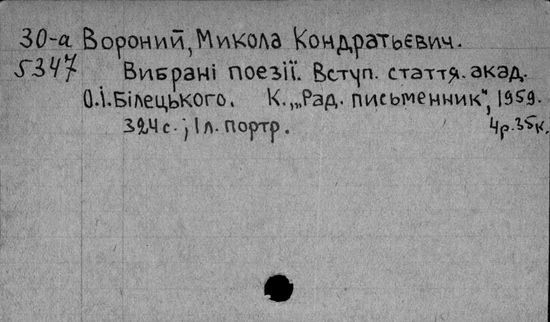 30-а Вороний, Микола Кондратьєвич.
5347 Вибрані поезії. Вступ. стаття. акад.
О.І.Білецького. К., „Рад. письменник", 1959.
324 с.; 1 л. портр. 4р.35к.